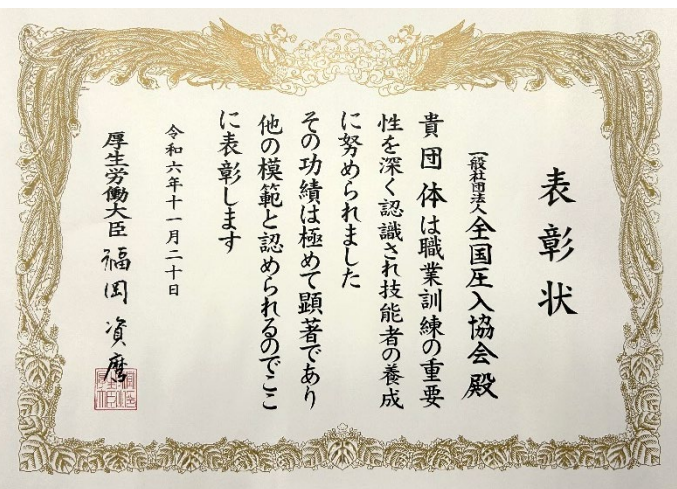 表彰状
一般社団法人全国圧入協会殿
貴団体は職業訓練の重要
性を深く認識され技能者の養成
に努められました
その功績は極めて顕著であり
他の模範と認められるのでここ
に表彰します
令和六年十一月二十日
厚生労働大臣 福岡資麿